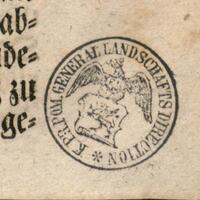 ab-
de-
zu
ge-
K. PR. POM. GENERAL LANDSCHAFTS DIRECTION